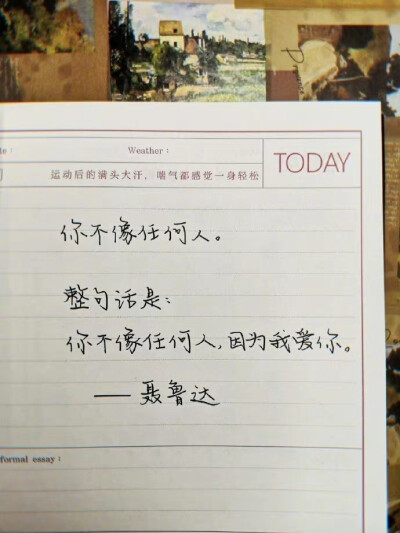 te：
Weather：
运动后的满头大汗，喘气都感觉一身轻松
TODAY
你不像任何人。
整句话是：
你不像任何人，因为我爱你。
——聂鲁达
formal essay：